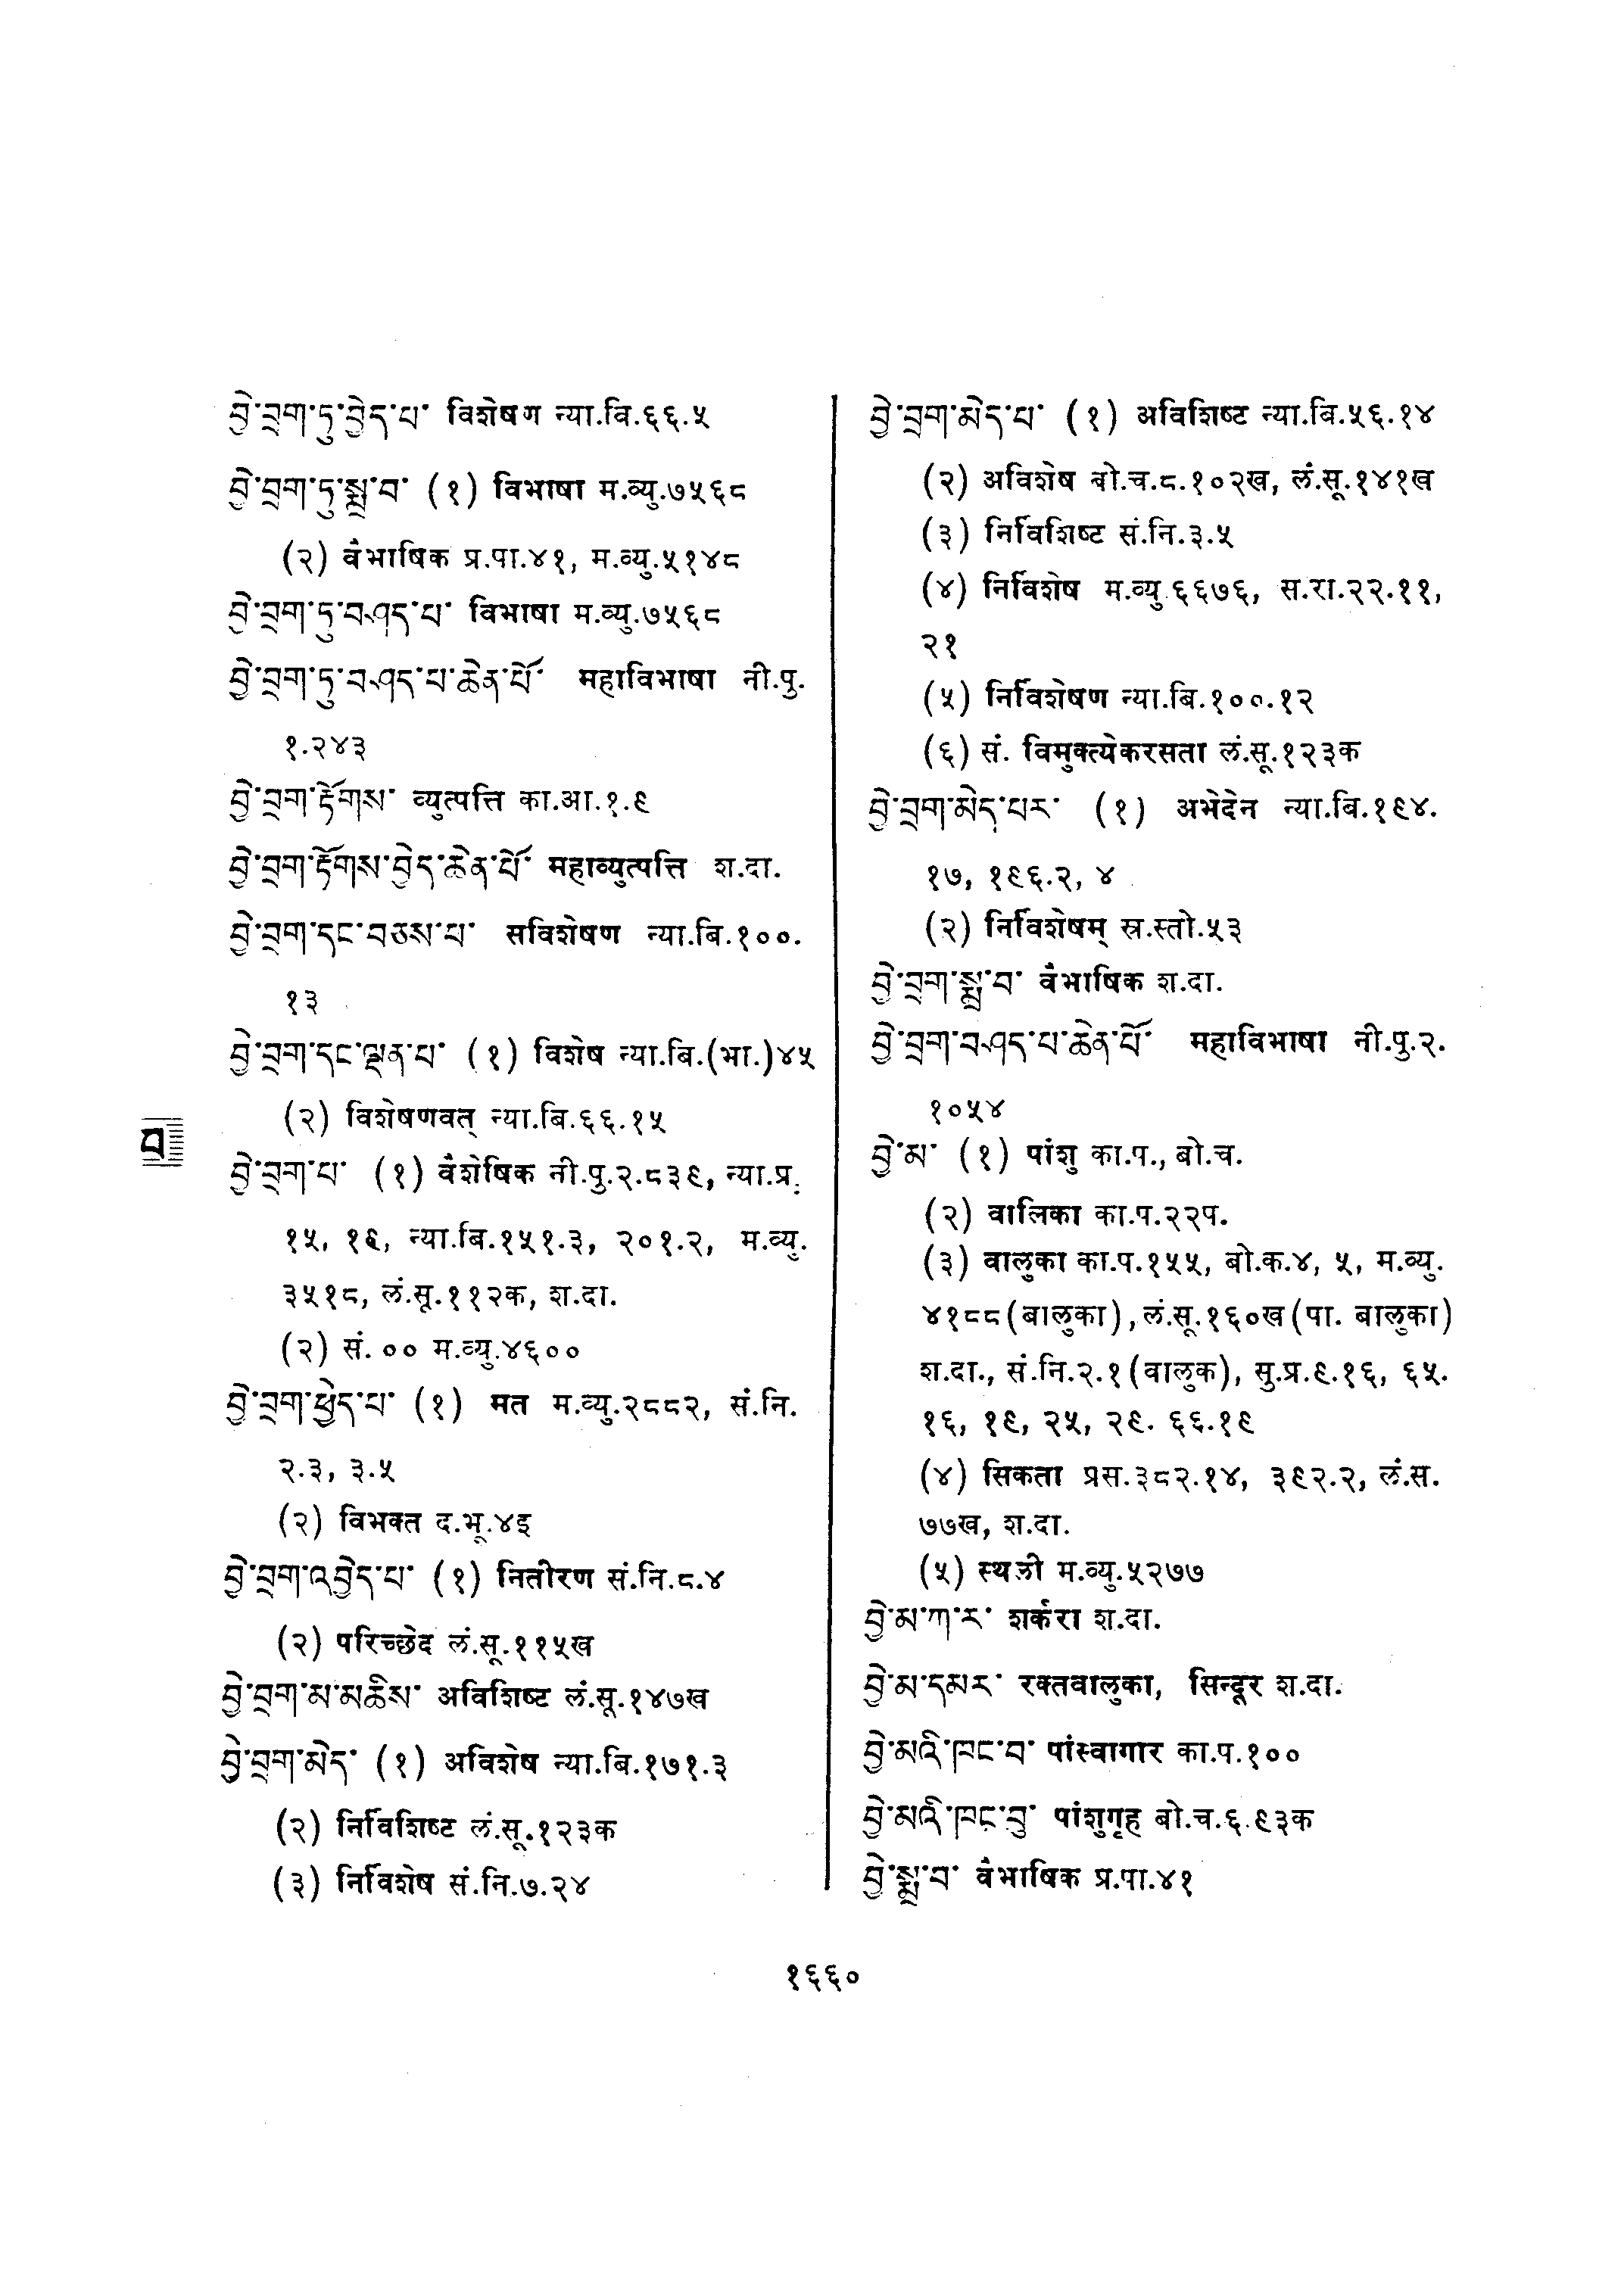 བྱེ་བྲག་ཏུ་བྱེད་པ་ विशेषण न्या.वि.६६.५
བྱེ་བྲག་ཏུ་སྨྲ་བ་ (१) विभाषा म.व्यु.७५६८
(२) वैभाषिक प्र.पा.४१, म.व्यु.५१४८
བྱེ་བྲག་ཏུ་བཤད་པ་ विभाषा म.व्यु.७५६८
བྱེ་བྲག་ཏུ་བཤད་པ་ཆེན་པོ་ महाविभाषा नी.पु.
१.२४३
བྱེ་བྲག་རྟོགས་ व्युत्पत्ति का.आ.१.९
བྱེ་བྲག་རྟོགས་བྱེད་ཆེན་པོ་ महाव्युत्पत्ति श.दा.
བྱེ་བྲག་དང་བཅས་པ་ सविशेषण न्या.बि.१००.
१३
བྱེ་བྲག་དང་ལྡན་པ་ (१) विशेष न्या.बि.(भा.)४५
(२) विशेषणवत् न्या.बि.६६.१५
བྱེ་བྲག་པ་ (१) वैशेषिक नी.पु.२.८३९, न्या.प्र.
१५, १६, न्या.बि.१५१.३, २०१.२, म.व्यु.
३५१८, लं.सू.११२क, श.दा.
(२) सं. ०० म.व्यु.४६००
བྱེ་བྲག་ཕྱེད་པ་ (१) मत म.व्यु.२८८२, सं.नि.
२.३, ३.५
(२) विभक्त द.भू.४इ
བྱེ་བྲག་འབྱེད་པ་ (१) नितीरण सं.नि.८.४
(२) परिच्छेद लं.सू.११५ख
བྱེ་བྲག་མ་མཆིས་ अविशिष्ट लं.सू.१४७ख
བྱེ་བྲག་མེད་ (१) अविशेष न्या.बि.१७१.३
(२) निर्विशिष्ट लं.सू.१२३क
(३) निर्विशेष सं.नि.७.२४
བ
བྱེ་བྲག་མེད་པ་ (१) अविशिष्ट न्या.बि.५६.१४
(२) अविशेष बो.च.८.१०२ख, लं.सू.१४१ख
(३) निर्विशिष्ट सं.नि.३.५
(४) निर्विशेष म.व्यु.६६७६, स.रा.२२.११,
२१
(५) निर्विशेषण न्या.बि.१००.१२
(६) सं. विमुक्त्येकरसता लं.सू.१२३क
བྱེ་བྲག་མེད་པར་ (१) अभेदेन न्या.बि.१९४.
१७, १९६.२, ४
(२) निर्विशेषम् स्र.स्तो.५३
བྱེ་བྲག་སྨྲ་བ་ वैभाषिक श.दा.
བྱེ་བྲག་བཤད་པ་ཆེན་པོ་ महाविभाषा नी.पु.२.
१०५४
བྱེ་མ་ (१) पांशु का.प., बो.च.
(२) वालिका का.प.२२प.
(३) वालुका का.प.१५५, बो.क.४, ५, म.व्यु.
४१८८(बालुका), लं.सू.१६०ख(पा. बालुका)
श.दा., सं.नि.२.१(वालुक), सु.प्र.९.१६, ६५.
१६, १९, २५, २९. ६६.१९
(४) सिकता प्रस.३८२.१४, ३९२.२, लं.स.
७७ख, श.दा.
(५) स्थली म.व्यु.५२७७
བྱེ་མ་ཀ་ར་ शर्करा श.दा.
བྱེ་མ་དམར་ रक्तवालुका, सिन्दूर श.दा.
བྱེ་མའི་ཁང་བ་ पांस्वागार का.प.१००
བྱེ་མའི་ཁང་བུ་ पांशुगृह बो.च.६.९३क
བྱེ་སྨྲ་བ་ वैभाषिक प्र.पा.४१
१६६०